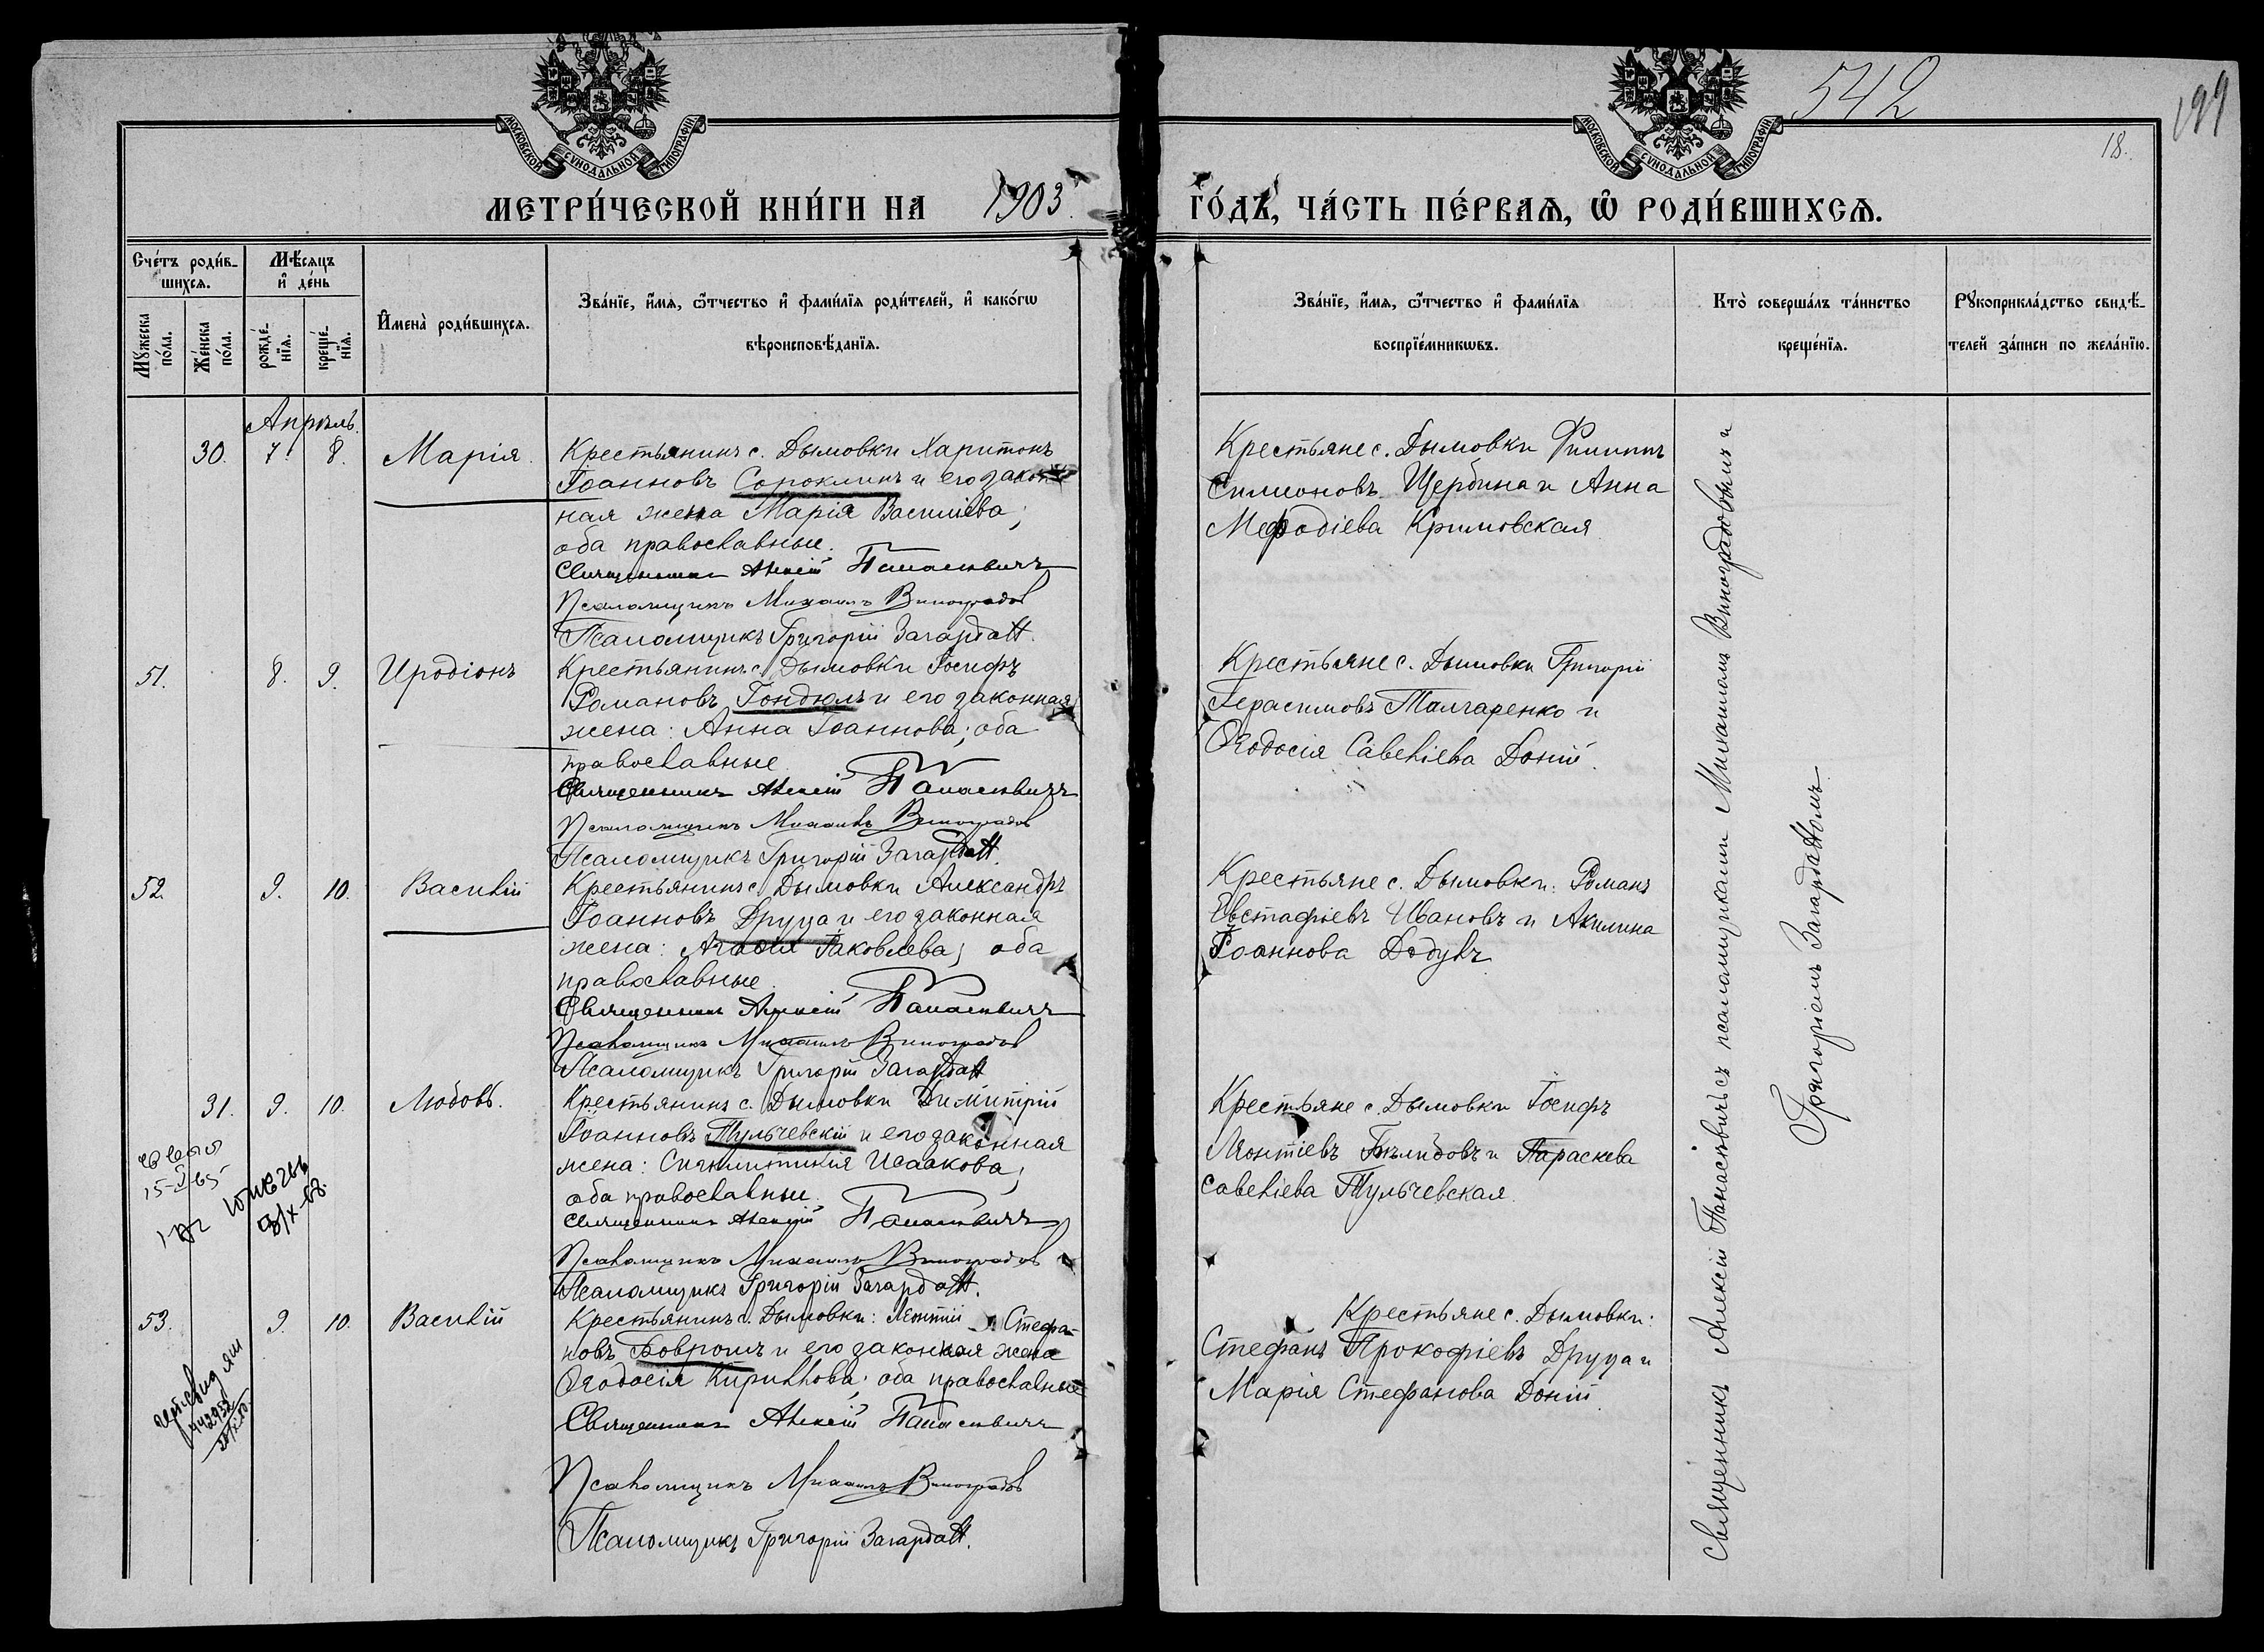 542
199
18.
МОСКОВСКОЙ СѴНОДАЛЬНОЙ ТИПОГРАФІИ
МОСКОВСКОЙ СѴНОДАЛЬНОЙ ТИПОГРАФІИ
МЕТРИ́ЧЕСКОЙ КНИ́ГИ НА 1903 ГО́ДЪ, ЧА́СТЬ ПЕ́РВАѦ, Ѡ РОДИ́ВШИХСѦ.
Сче́тъ роди́в-
шихсѧ.
Мꙋжеска по́ла.
Же́нска по́ла.
Мѣ́сяцъ
и҆ де́нь
рожде́-
нїѧ.
креще́-
нїѧ.
И҆мена̀ роди́вшихсѧ.
Зва́нїе, и҆́мѧ, ѻ҆́тчество и҆ фами́лїѧ роди́телей, и҆ како́гѡ
вѣроисповѣ́данїѧ.
Зва́нїе, и҆́мѧ, ѻ҆́тчество и҆ фами́лїѧ
воспрїе́мникѡвъ.
Кто̀ соверша́лъ та́инство
креще́нїѧ.
Рꙋкоприкла́дство свидѣ́-
телей за́писи по жела́нїю.
Апрѣль.
30. 7. 8. Марія.
Крестьянинъ с. Дымовки Харитонъ
Іоанновъ Сороклитъ и его закон-
ная жена Марія Василіева;
оба православные.
Священникъ Алексій Панасевичъ
Псаломщикъ Михаилъ Виноградов
Псаломщикъ Григорій Загардатт.
Крестьяне с. Дымовки Филиппъ
Симеоновъ Щербина и Анна
Мефодіева Кримовская
51. 8. 9. Иродіонъ
Крестьянинъ с. Дымовки Іосифъ
Романовъ Гондюлъ и его законная
жена: Анна Іоаннова; оба
православные
Священникъ Алексій Панасевичъ
Псаломщикъ Михаилъ Виноградов
Псаломщикъ Григорій Загардатт.
Крестьяне с. Дымовки Григорій
Герасимовъ Талгаренко и
Ѳеодосія Савеліева Доній.
52. 9. 10. Василій
Крестьянинъ с. Дымовки Александръ
Іоанновъ Друца и его законная
жена: Агафія Іаковлева; оба
православные.
Священникъ Алексій Панасевичъ
Псаломщикъ Михаилъ Виноградов
Псаломщикъ Григорій Загардатт
Крестьяне с. Дымовки: Романъ
Евстафіевъ Ивановъ и Акилина
Іоаннова Додулъ
31. 9. 10. Любовь.
Крестьянинъ с. Дымовки Димитрій
Іоанновъ Тульчевскій и его законная
жена: Синклитикія Исаакова;
оба православные.
Священникъ Алексій Панасевичъ
Псаломщикъ Михаилъ Виноградов
Псаломщикъ Григорій Загардатт.
Крестьяне с. Дымовки Іосифъ
Леонтіевъ и Параскева
Савеліева Тульчевская
53. 9. 10. Василій
Крестьянинъ с. Дымовки: Леонтій Стефа-
новъ Бовромъ и его законная жена
Ѳеодосія Кириллова; оба православные
Священникъ Алексій Панасевичъ
Псаломщикъ Михаилъ Виноградов
Псаломщикъ Григорій Загардатт.
Крестьяне с. Дымовки:
Стефанъ Прокофіевъ Друца и
Марія Стефанова Доній
Священникъ Алексій Панасевичъ съ псаломщиками Михаиломъ Виноградовымъ и
Григоріемъ Загардаттомъ